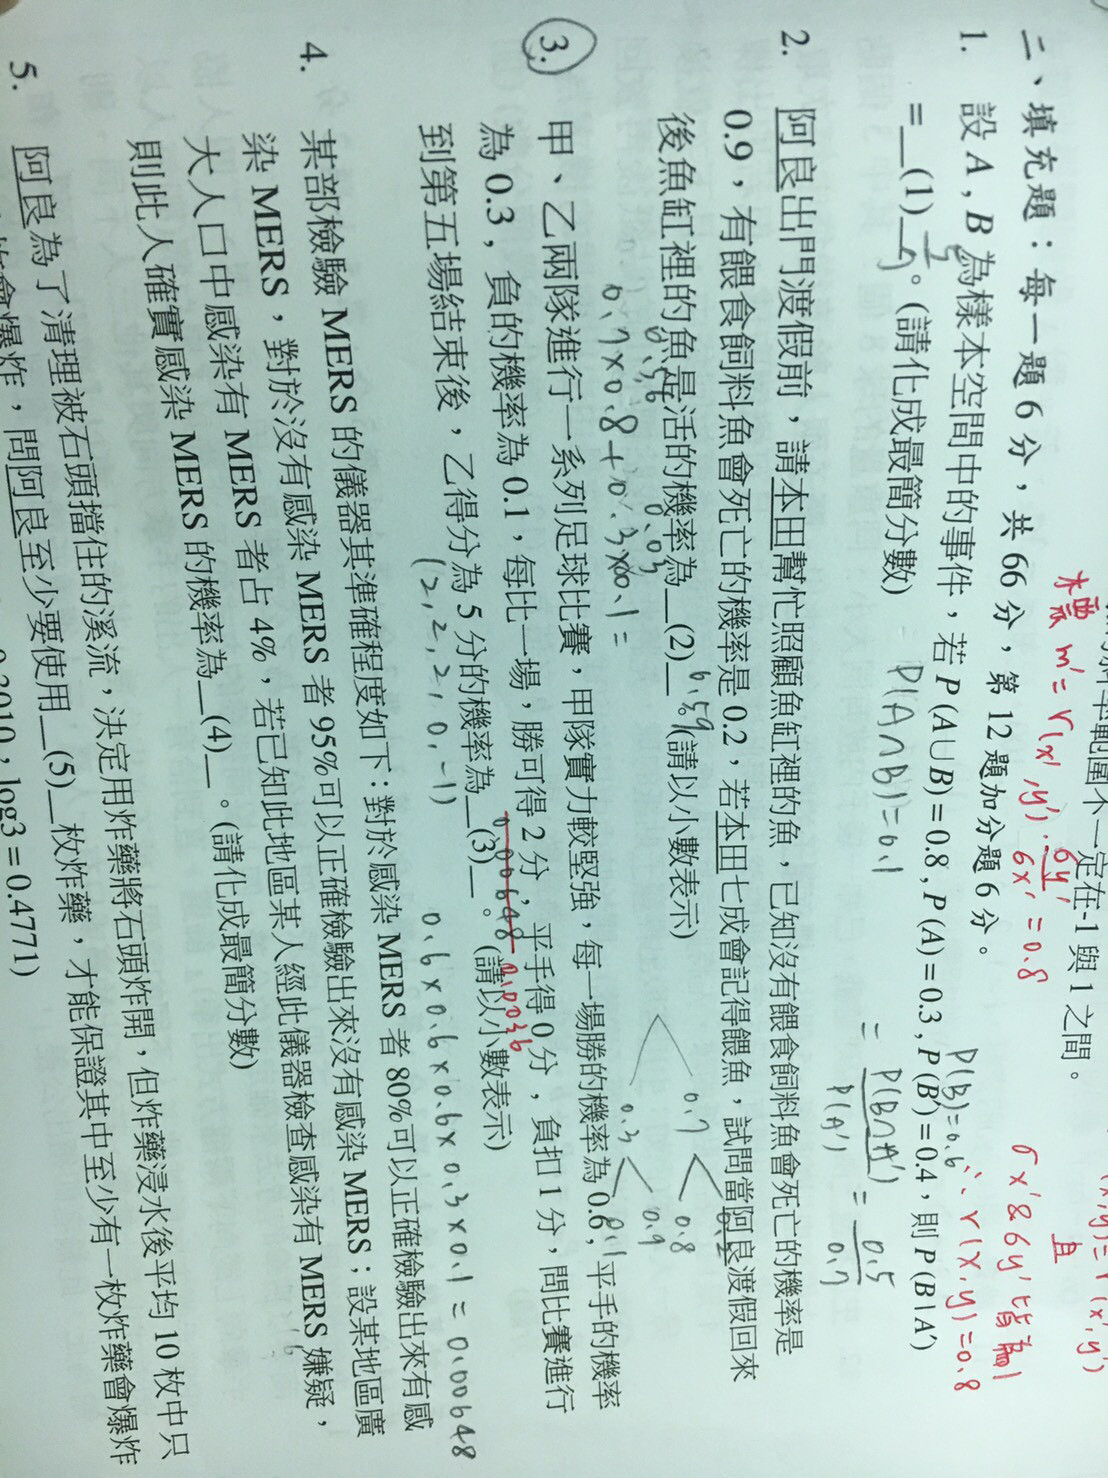 斜率範圍不一定在-1與1之間。
標 m' = r(x',y')·6y'/6x' = 0.8
6x' & 6y' 皆為1
且
∴ r(x,y) = 0.8
二、填充題：每一題 6 分，共 66 分，第 12 題加分題 6 分。
1. 設 A，B 為樣本空間中的事件，若 P(A∪B)=0.8，P(A)=0.3，P(B')=0.4，則 P(B|A')
=__(1)__。(請化成最簡分數)
5/7
P(B)=0.6
P(A∩B)=0.1
= P(B∩A')/P(A') = 0.5/0.7
2. 阿良出門渡假前，請本田幫忙照顧魚缸裡的魚，已知沒有餵食飼料魚會死亡的機率是
0.9，有餵食飼料魚會死亡的機率是 0.2，若本田七成會記得餵魚，試問當阿良渡假回來
後魚缸裡的魚是活的機率為__(2)__(請以小數表示)
0.59
0.56 0.03
0.7×0.8+0.3×0.1=
0.7 0.2
0.8
0.3 0.1
0.9
3. 甲、乙兩隊進行一系列足球比賽，甲隊實力較堅強，每一場勝的機率為 0.6，平手的機率
為 0.3，負的機率為 0.1，每比一場，勝可得 2 分，平手得 0 分，負扣 1 分，問比賽進行
到第五場結束後，乙得分為 5 分的機率為__(3)__。(請以小數表示)
0.00648 0.0036
(2,2,2,0,-1) 0.6×0.6×0.6×0.3×0.1=0.00648
4. 某部檢驗 MERS 的儀器其準確程度如下：對於感染 MERS 者 80%可以正確檢驗出來有感
染 MERS，對於沒有感染 MERS 者 95%可以正確檢驗出來沒有感染 MERS；設某地區廣
大人口中感染有 MERS 者占 4%，若已知此地區某人經此儀器檢查感染有 MERS 嫌疑，
則此人確實感染 MERS 的機率為__(4)__。(請化成最簡分數)
5. 阿良為了清理被石頭擋住的溪流，決定用炸藥將石頭炸開，但炸藥浸水後平均 10 枚中只
會爆炸，問阿良至少要使用__(5)__枚炸藥，才能保證其中至少有一枚炸藥會爆炸
0.3010，log3=0.4771)